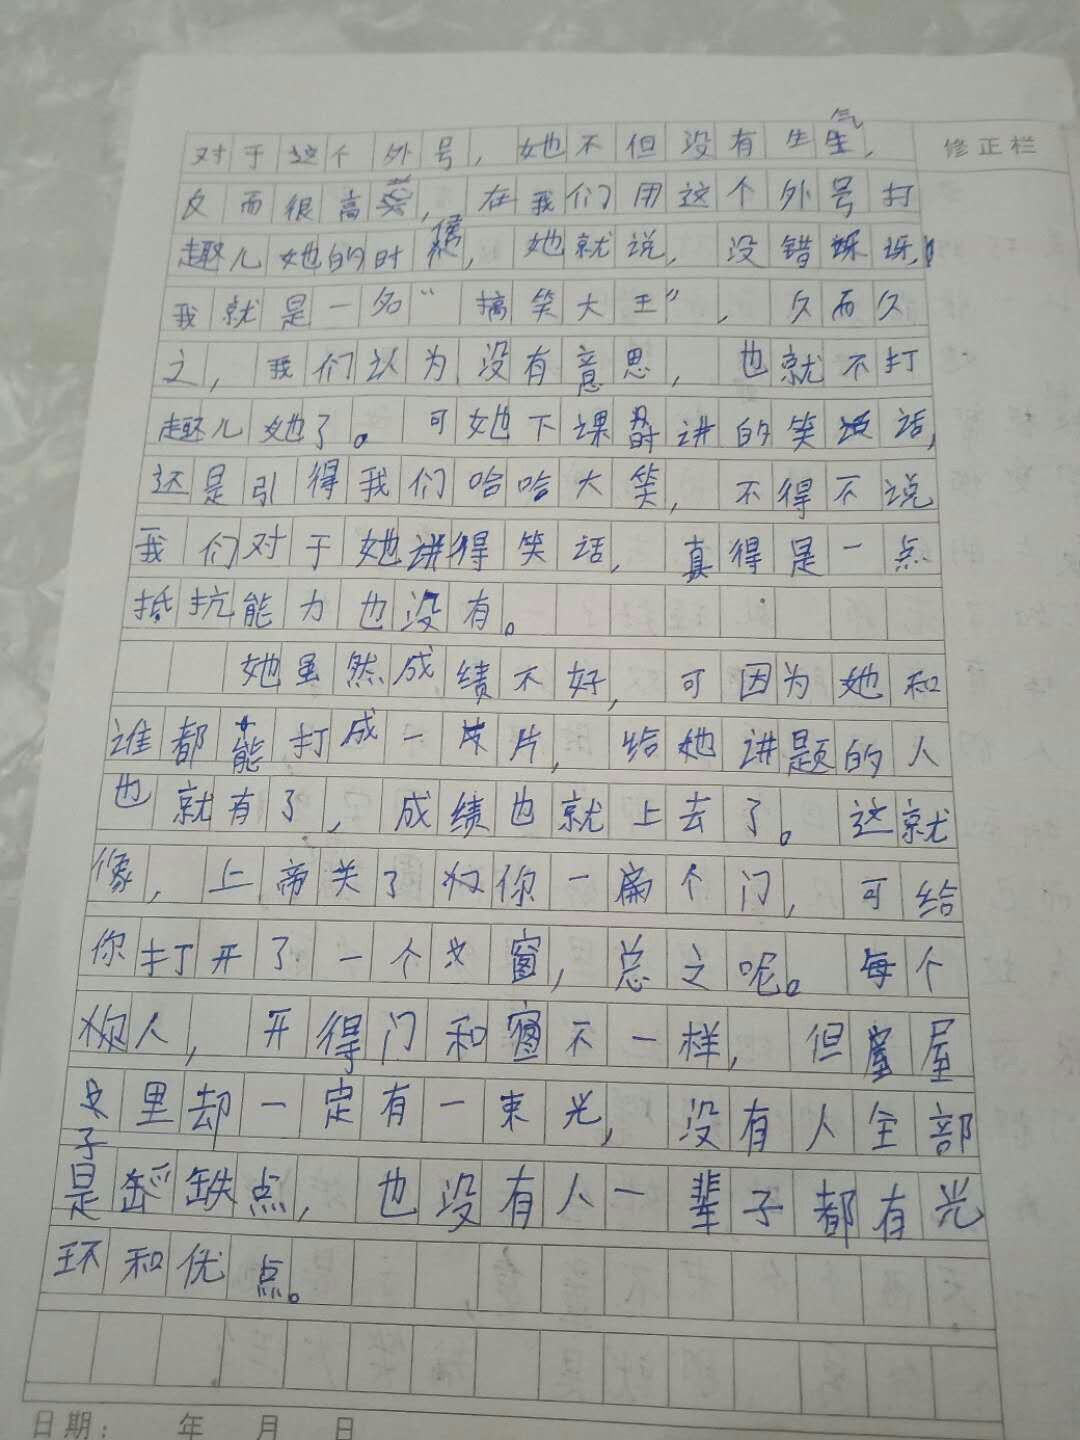 对于这个外号，她不但没有生气，
修正栏
反而很高兴，在我们用这个外号打
趣儿她的时候，她就说，没错呀，
我就是一名“搞笑大王”，久而久
之，我们认为没有意思，也就不打
趣儿她了。可她下课时讲的笑话，
还是引得我们哈哈大笑，不得不说
我们对于她讲得笑话，真得是一点
抵抗能力也没有。
她虽然成绩不好，可因为她和
谁都能打成一片，给她讲题的人
也就有了，成绩也就上去了。这就
像，上帝关了你一扇个门，可给
你打开了一个窗，总之呢。每个
人，开得门和窗不一样，但屋
子里却一定有一束光，没有人全部
是缺点，也没有人一辈子都有光
环和优点。
日期： 年 月 日